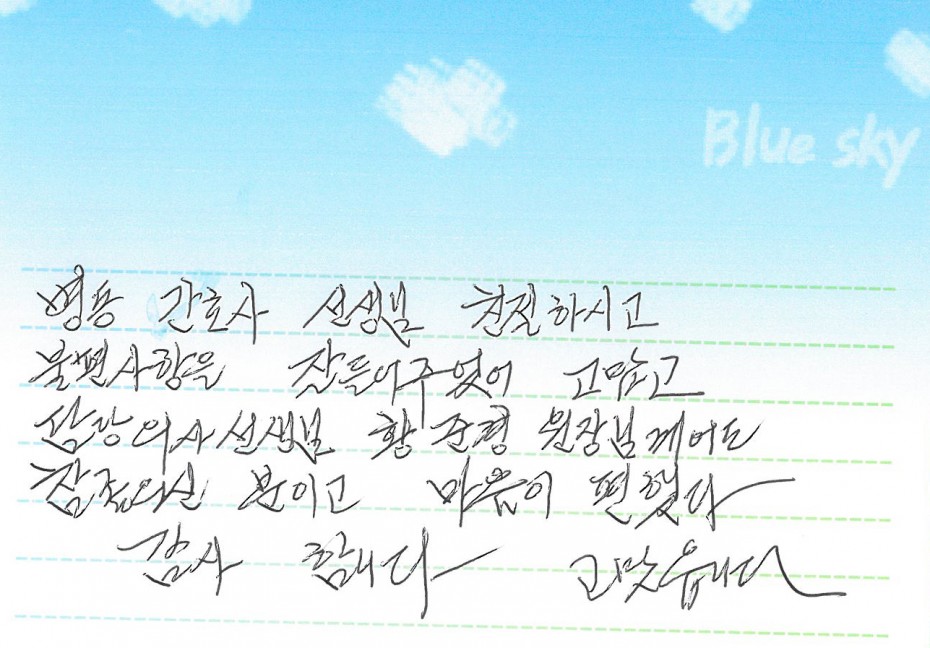 Blue sky
병동 간호사 선생님 친절하시고
불편사항을 잘들어주었어 고맙고
담당의사선생님 황준평 원장님께어도
참 분이고 마음이 편했다
감사 합니다 고맛습니다